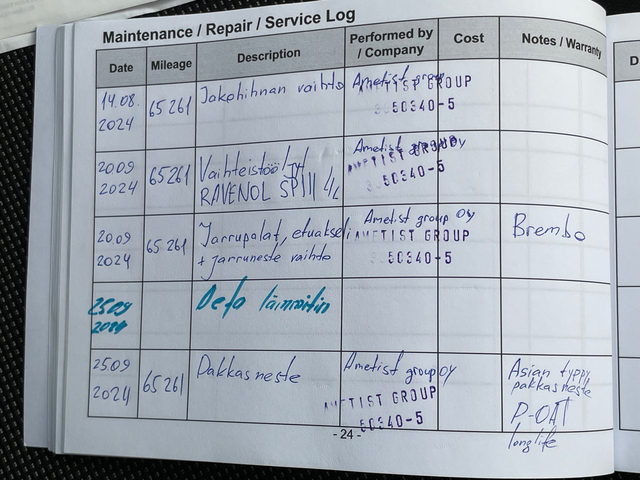 Maintenance / Repair / Service Log
Date Mileage Description Performed by / Company Cost Notes / Warranty
14.08. 2024
65261
Jakohihnan vaihto
Ametist group
TIST GROUP
50340-5
20.09 2024
65261
Vaihteistoöljyt
RAVENOL SP III 4L
Ametist group oy
50340-5
20.09 2024
65261
Jarrupalat, etuakseli
+ jarruneste vaihto
Ametist group oy
AMETIST GROUP
50340-5
Brembo
25.09 2024
Defa lämmitin
25.09 2024
65261
Pakkasneste
Ametist group oy
AMETIST GROUP
50340-5
Asian typpy
pakkasneste
P-OAT
longlife
- 24 -
D